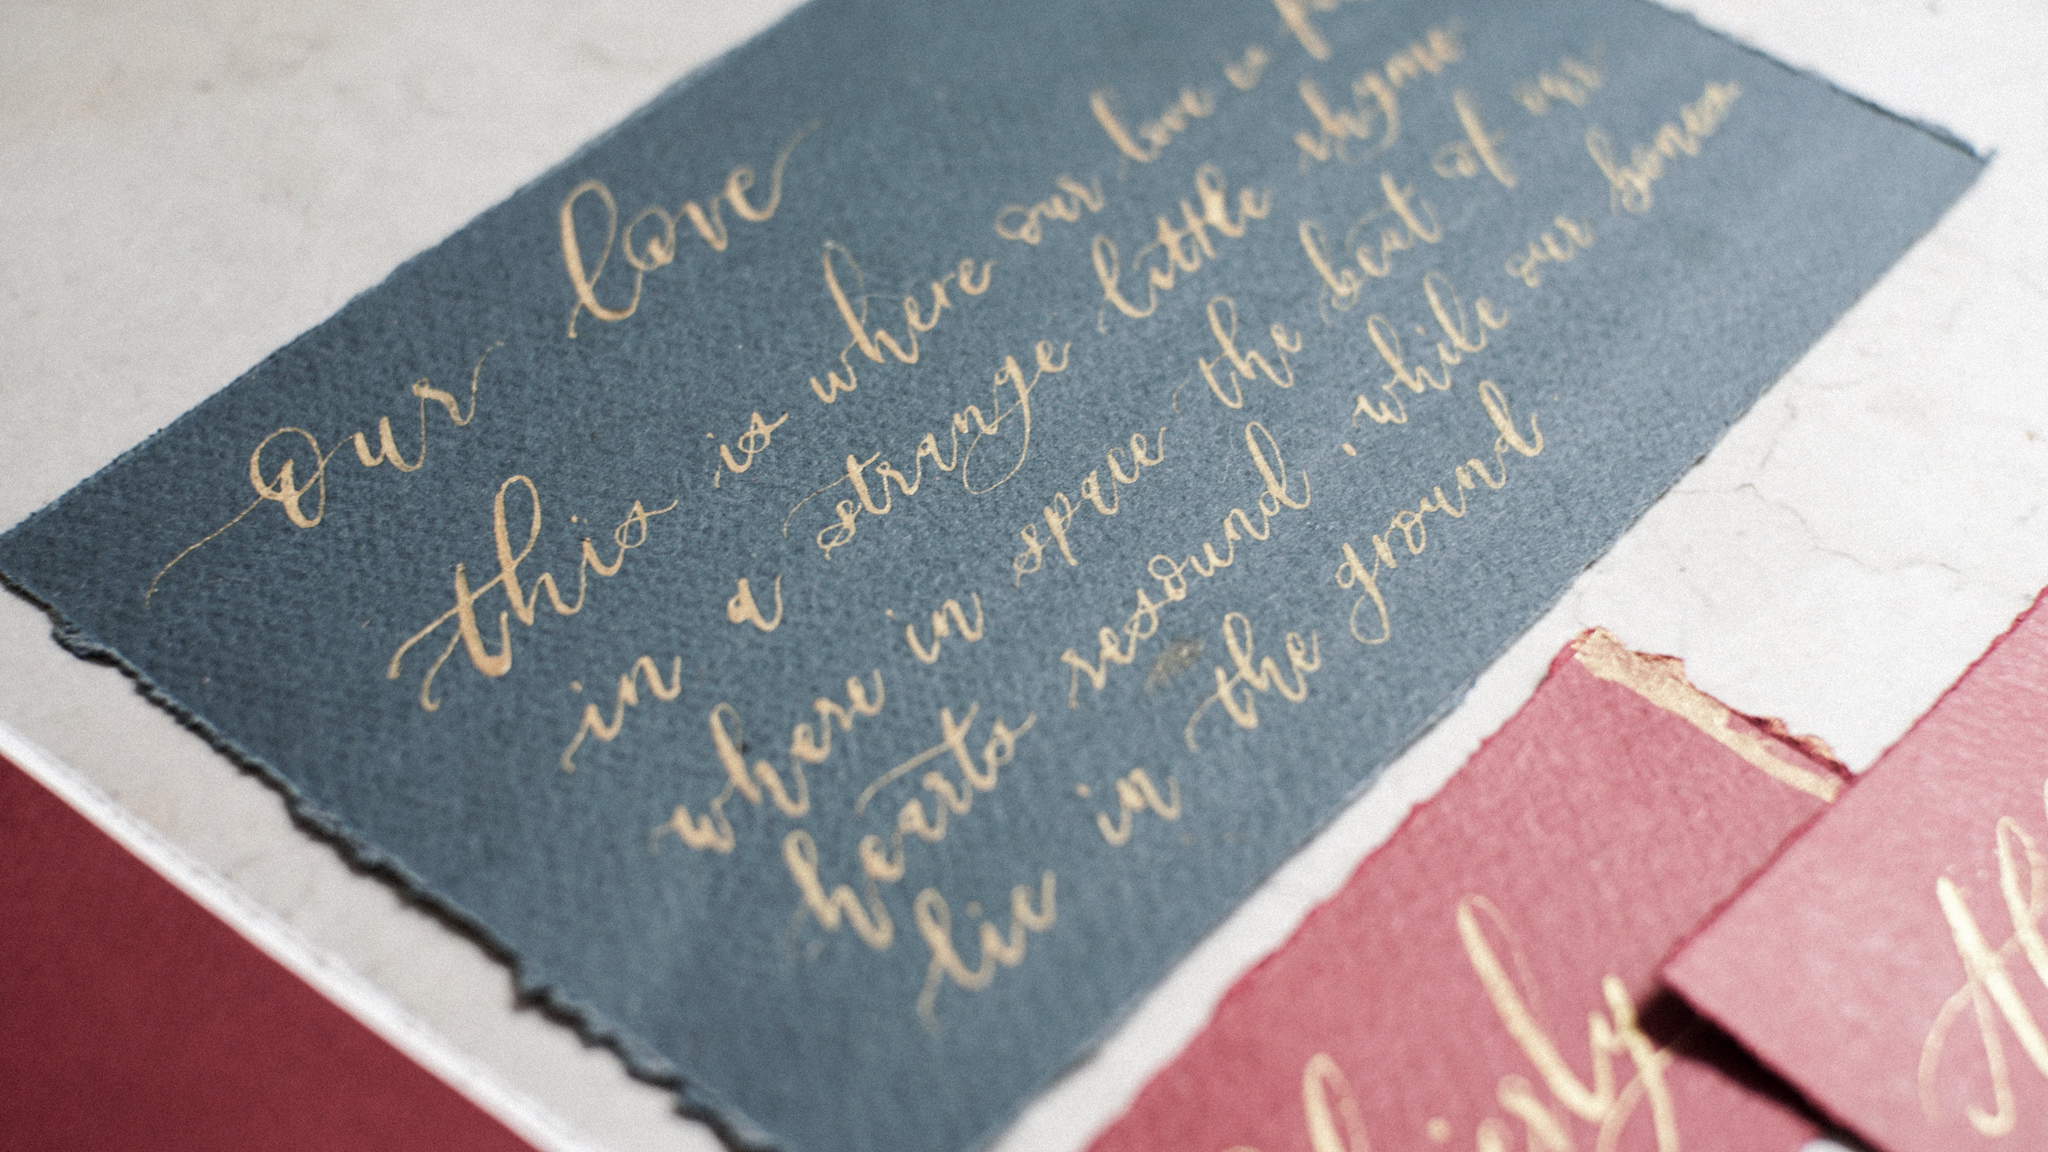 Our love
this is where our love is
in a strange little rhyme
where in space the beat of our
hearts resound, while our bones
lie in the ground